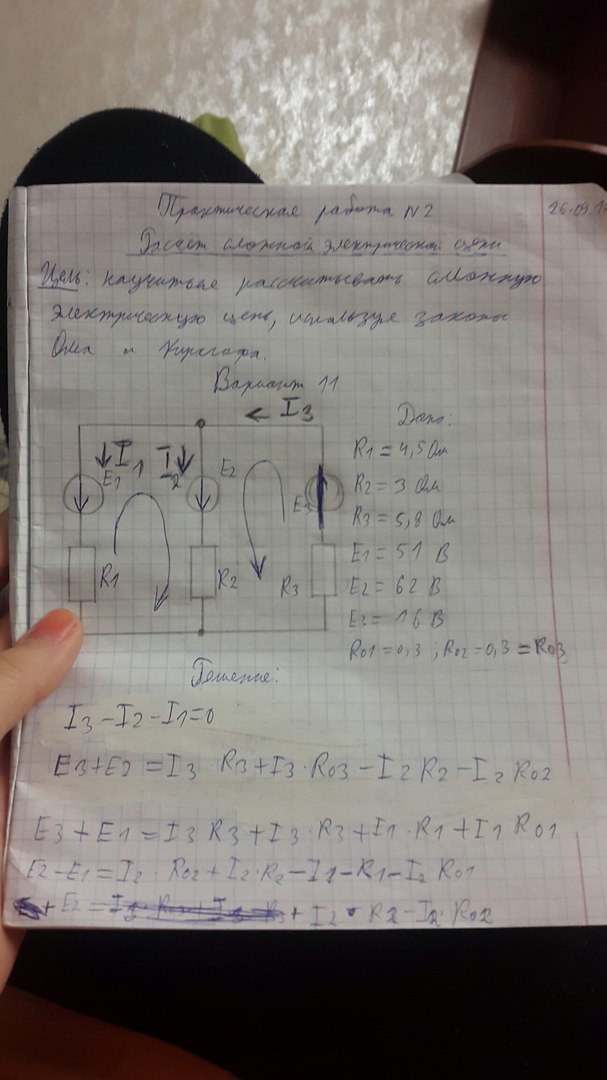 Практическая работа N2
26.09.1
Расчет сложной электрической цепи
Цель: научиться рассчитывать сложную
электрическую цепь, используя законы
Ома и Кирхгофа.
Вариант 11
← I3
Дано:
I1
I2
E1
E2
E3
R1
R2
R3
R1 = 4,5 Ом
R2 = 3 Ом
R3 = 5,8 Ом
E1 = 51 В
E2 = 62 В
E3 = 16 В
R01 = 0,3 ; R02 = 0,3 = R03
Решение:
I3 - I2 - I1 = 0
E3 + E2 = I3 · R3 + I3 · R03 - I2 R2 - I2 R02
E3 + E1 = I3 R3 + I3 · R3 + I1 · R1 + I1 R01
E2 - E1 = I2 · R02 + I2 · R2 - I1 - R1 - I2 R01
+ E2 = + I2 · R2 - I2 · R02